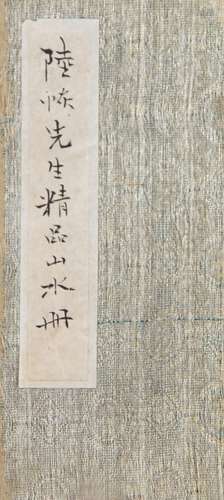 陸恢先生精品山水冊